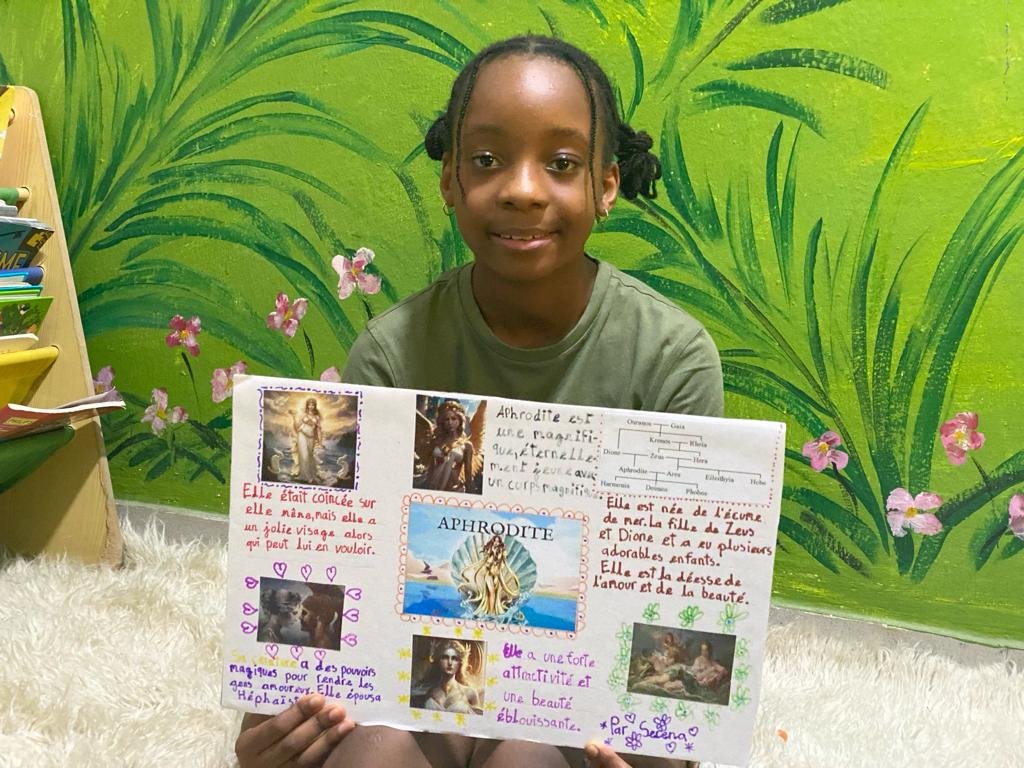 Elle était coincée sur
elle même, mais elle a
un jolie visage alors
qui peut lui en vouloir.
a des pouvoirs
magiques pour rendre les
gens amoureux. Elle épousa
Aphrodite est
une magnifi-
que, éternelle-
ment jeune avec
un corps magnifique
APHRODITE
Elle a une forte
attractivité et
une beauté
éblouissante.
Ouranos Gaia
Kronos Rheia
Dione Zeus Hera
Aphrodite Ares Eileithyia Hebe
Harmonia Deimos Phobos
Elle est née de l'écume
de mer. La fille de Zeus
et Dione et a eu plusieurs
adorables enfants.
Elle est la déesse de
l'amour et de la beauté.
Par Serena